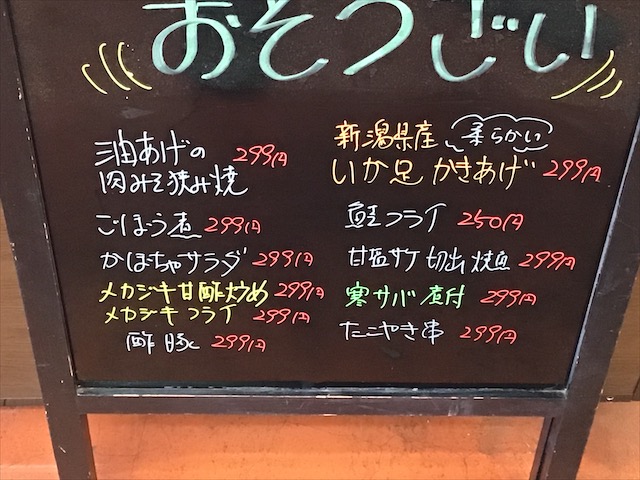 おそうざい
油あげの 299円
肉みそ狭み焼
ごぼう煮 299円
かぼちゃサラダ 299円
メカジキ甘酢炒め 299円
メカジキフライ 299円
酢豚 299円
新潟県産 柔らかい
いか足 かきあげ 299円
鮭フライ 250円
甘塩サケ 切出 焼魚 299円
寒サバ 煮付 299円
たこやき串 299円